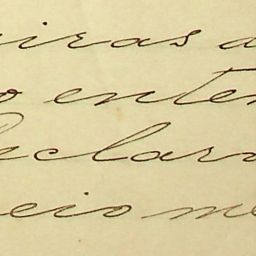 iras a
o enten
Declaro
eio me